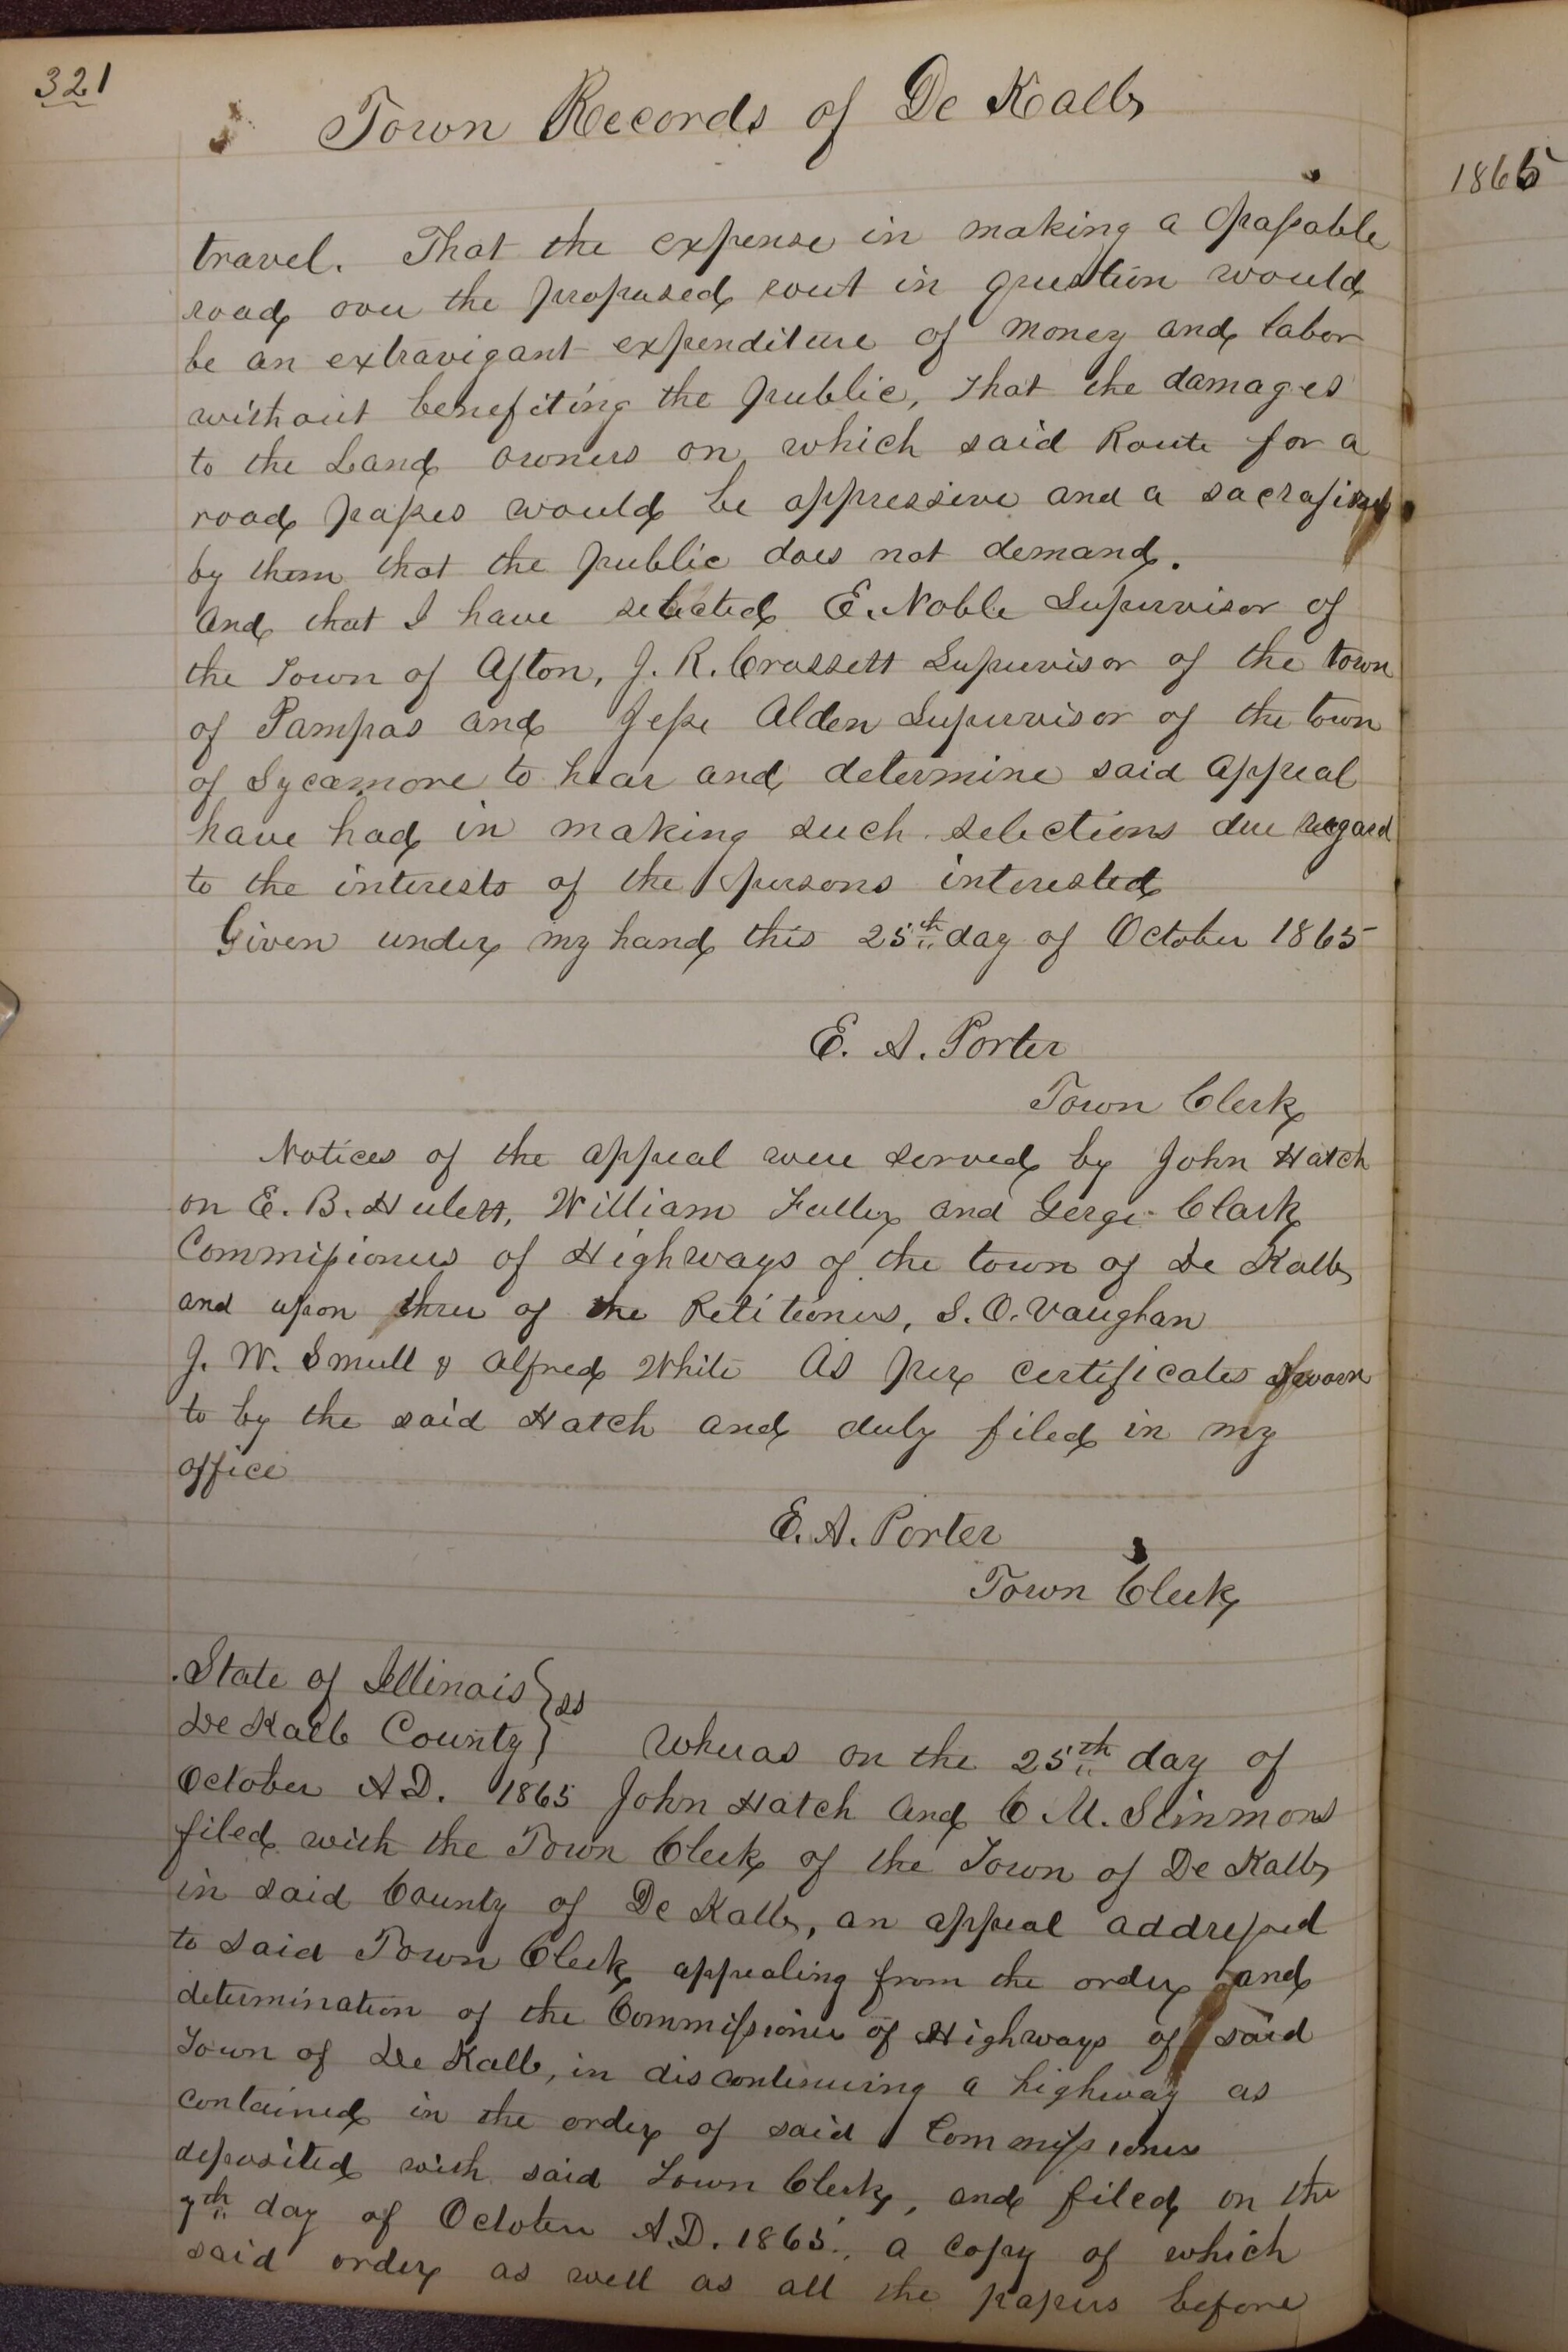 321
Town Records of De Kalb
1865
travel. That the expense in making a passable
road over the proposed rout in question would
be an extravigant expenditure of money and labor
without benefiting the public, that the damages
to the Land owners on which said Route for a
road passes would be oppressive and a
by them that the public does not demand.
And that I have selected E. Noble Supervisor of
the Town of Afton, J. R. Crossett Supervisor of the town
of Pampas and Jesse Alden Supervisor of the town
of Sycamore to hear and determine said appeal
have had in making such selections due regard
to the interests of the persons interested
Given under my hand this 25th day of October 1865
E. A. Porter
Town Clerk
Notices of the appeal were served by John Hatch
on E. B. Hulett, William Fuller and Gerge Clark
Commissioners of Highways of the town of De Kalb
and upon three of the Petitioners, S. O. Vaughan
J. W. Smull & Alfred White As per certificates sworn
to by the said Hatch and duly filed in my
office
E. A. Porter
Town Clerk
State of Illinois } ss
De Kalb County }
Whereas on the 25th day of
October A.D. 1865 John Hatch and C M. Simmons
filed with the Town Clerk of the Town of De Kalb
in said County of De Kalb, an appeal addressed
to said Town Clerk appealing from the order and
determination of the Commissioners of Highways of said
Town of De Kalb, in discontinuing a highway as
contained in the order of said Commissioners
deposited with said Town Clerk, and filed on the
7th day of October A.D. 1865, a copy of which
said order as well as all the papers before